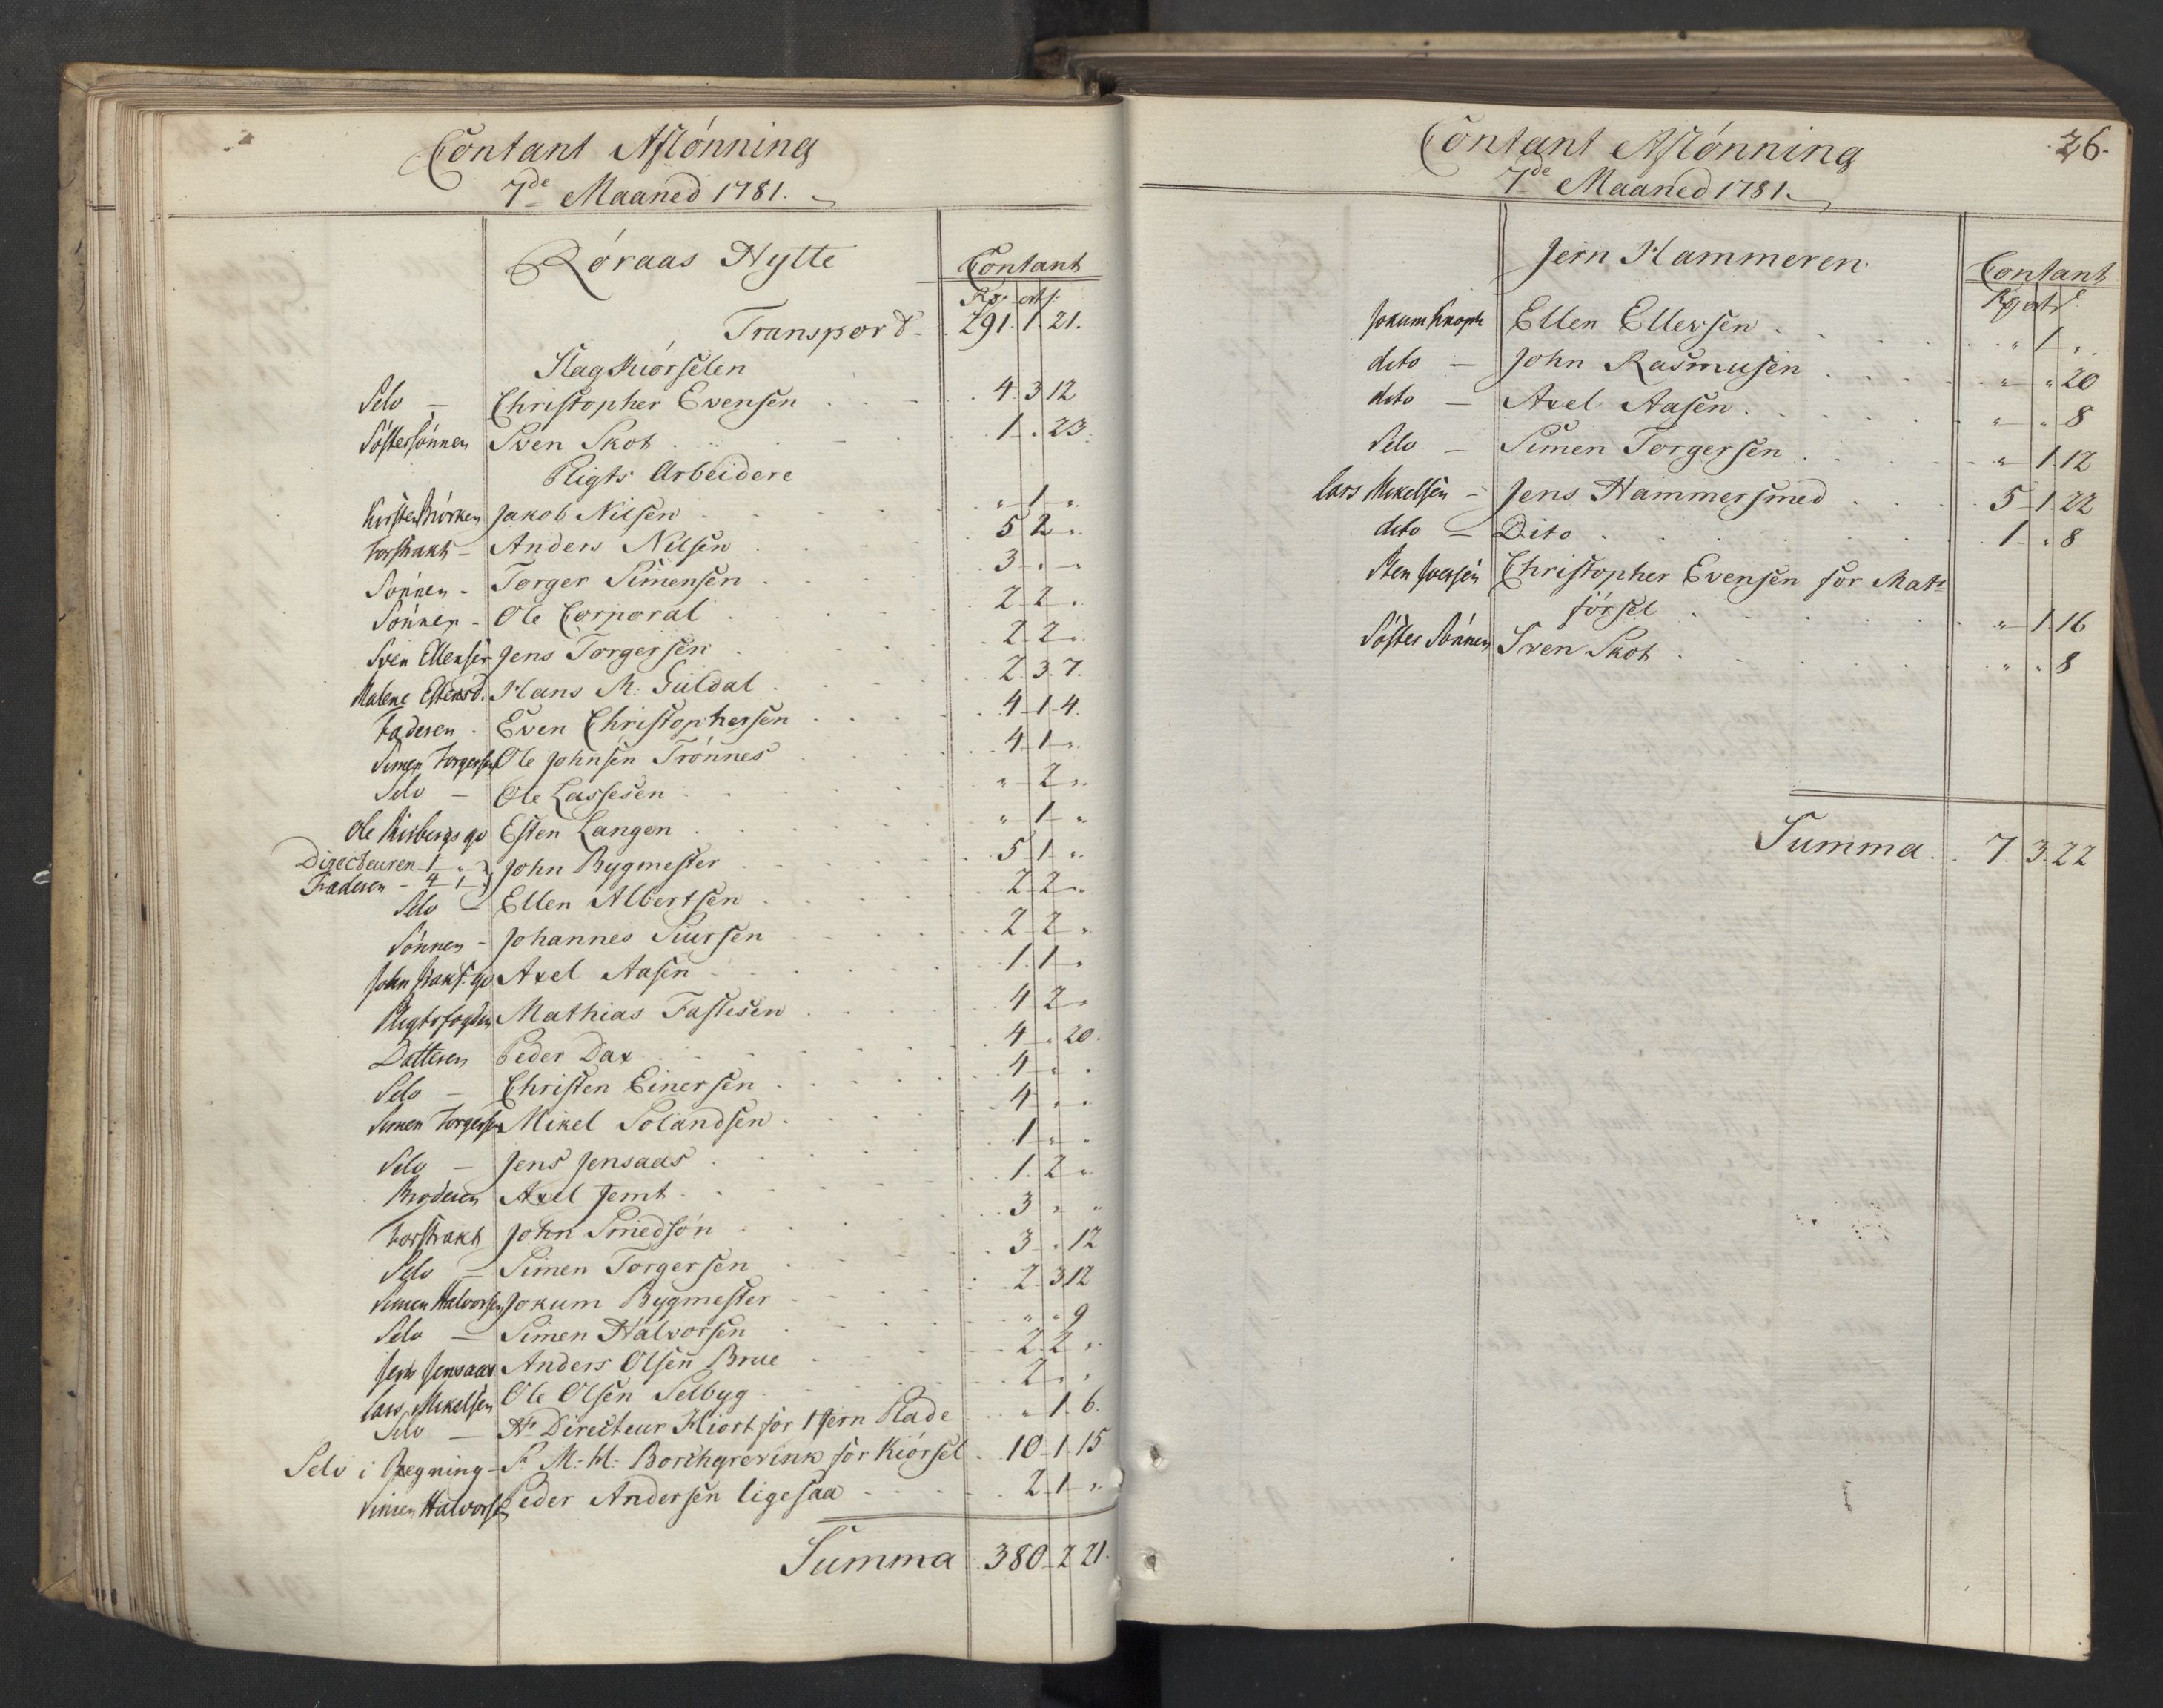 Contant Aflönning
7de Maaned 1781.
Röraas Hytte
Contant
Rd. ort s.
Transport. 291. 1. 21.
Slag Kiörselen
Selv — Christopher Evensen 4. 3 12
Söstersönnen Sven Skot 1 - . 23.
Pligts Arbeidere
Kirsten Jakob Nilsen " 1 "
Forstrakt - Anders Nilsen 5 2 "
Sönnen - Torger Simensen 3 " "
Sönnen - Ole Corporal 2 2 "
Sven Ellensen Jens Torgersen 2 2 "
Malene Estensd. Hans M. Guldal 2. 3. 7.
Faderen - Even Christophersen 4 1 4.
Simen Torgersen Ole Johnsen Trönnes 4 1 "
Selv — Ole Lassesen " 2 "
Ole Riisbergs qv Esten Langen " 1 "
Directeuren 1 " "
Faderen - 4 1 " } John Bygmester 5 1 "
Selv — Ellen Albertsen 2 2 "
Sönnen - Johannes Siursen 2 2 "
John qv Axel Aasen 1. 1 "
Pligtsfogden Mathias Fastesen 4 2 "
Datteren Peder Dax 4 " 20.
Selv — Christen Einersen 4 " "
Simen Torgersen Mikel Solandsen 4 " "
Selv — Jens Jensaas 1 " "
Broderen Axel Jemt 1. 2 "
Forstrakt John Smedsön 3 " "
Selv — Simen Torgersen 3 " 12
Simen Halvorsen Jokum Bygmester 2 3 12
Selv — Simen Halvorsen " " 9
Jens Jensaas Anders Olsen Brue 2 2 "
Lars Mikelsen Ole Olsen Selbyg 2 " "
Selv — Hr Directeur Hiort for 1 Jern Plade " 1. 6.
Selv i Regning - Sr. M: H: Borchgrevink for Kiörsel 10 1 15
Simen Halvorsen Peder Andersen ligesaa 2 1 "
Summa. 380 2 21.
26.
Contant Aflönning
7de Maaned 1781.
Jern Hammeren
Contant
Rd ort s
Jokum Knoph Ellen Ellensen " 1 "
dito — John Rasmusen " " 20
dito — Axel Aasen " " 8
Selv — Simen Torgersen " 1 12
Lars Mikelsen - Jens Hammersmed 5 1 22
dito — Dito 1 " 8
Sten Iversen Christopher Evensen for Mat=
försel " 1 16
Söster Sönnen Sven Skot " " 8
Summa. 7. 3. 22